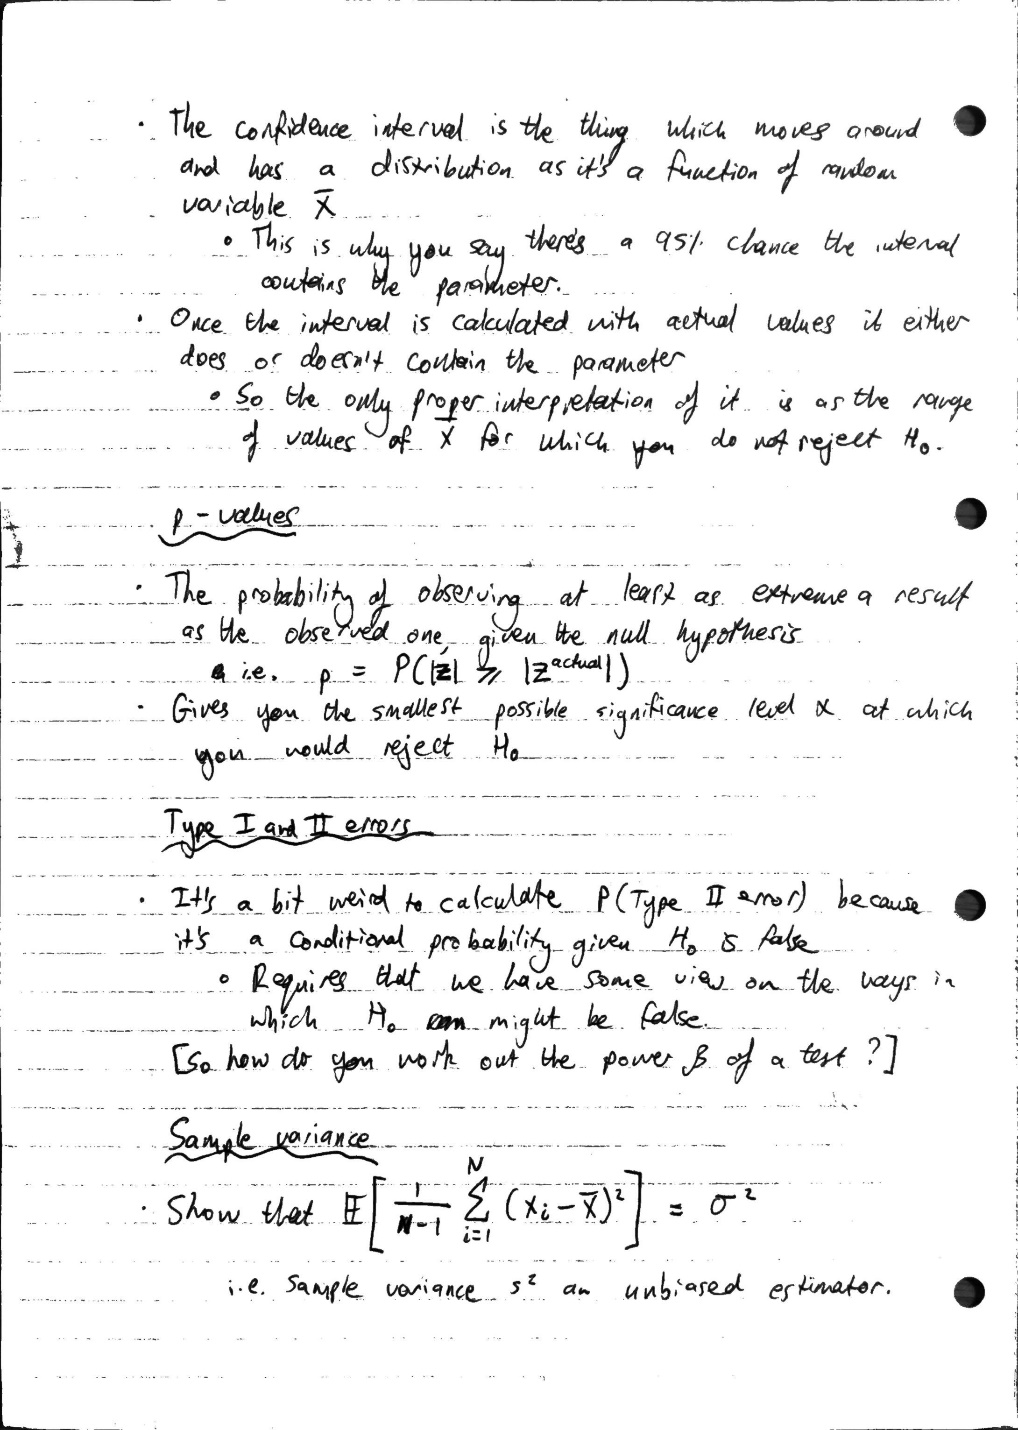 · The confidence interval is the thing which moves around
and has a distribution as it's a function of random
variable X̄
∘ This is why you say there's a 95% chance the interval
contains the parameter.
· Once the interval is calculated with actual values it either
does or doesn't contain the parameter
∘ So the only proper interpretation of it is as the range
of values of X̄ for which you do not reject H₀.
p-values
· The probability of observing at least as extreme a result
as the observed one, given the null hypothesis
i.e. p = P(|z| ⩾ |z^actual|)
· Gives you the smallest possible significance level α at which
you would reject H₀
Type I and II errors
· It's a bit weird to calculate P(Type II error) because
it's a conditional probability given H₀ is false
∘ Requires that we have some view on the ways in
which H₀ might be false.
[So how do you work out the power β of a test?]
Sample variance
· Show that 𝔼[1/(N-1) ∑_{i=1}^{N} (x_i - x̄)²] = σ²
i.e. sample variance s² an unbiased estimator.